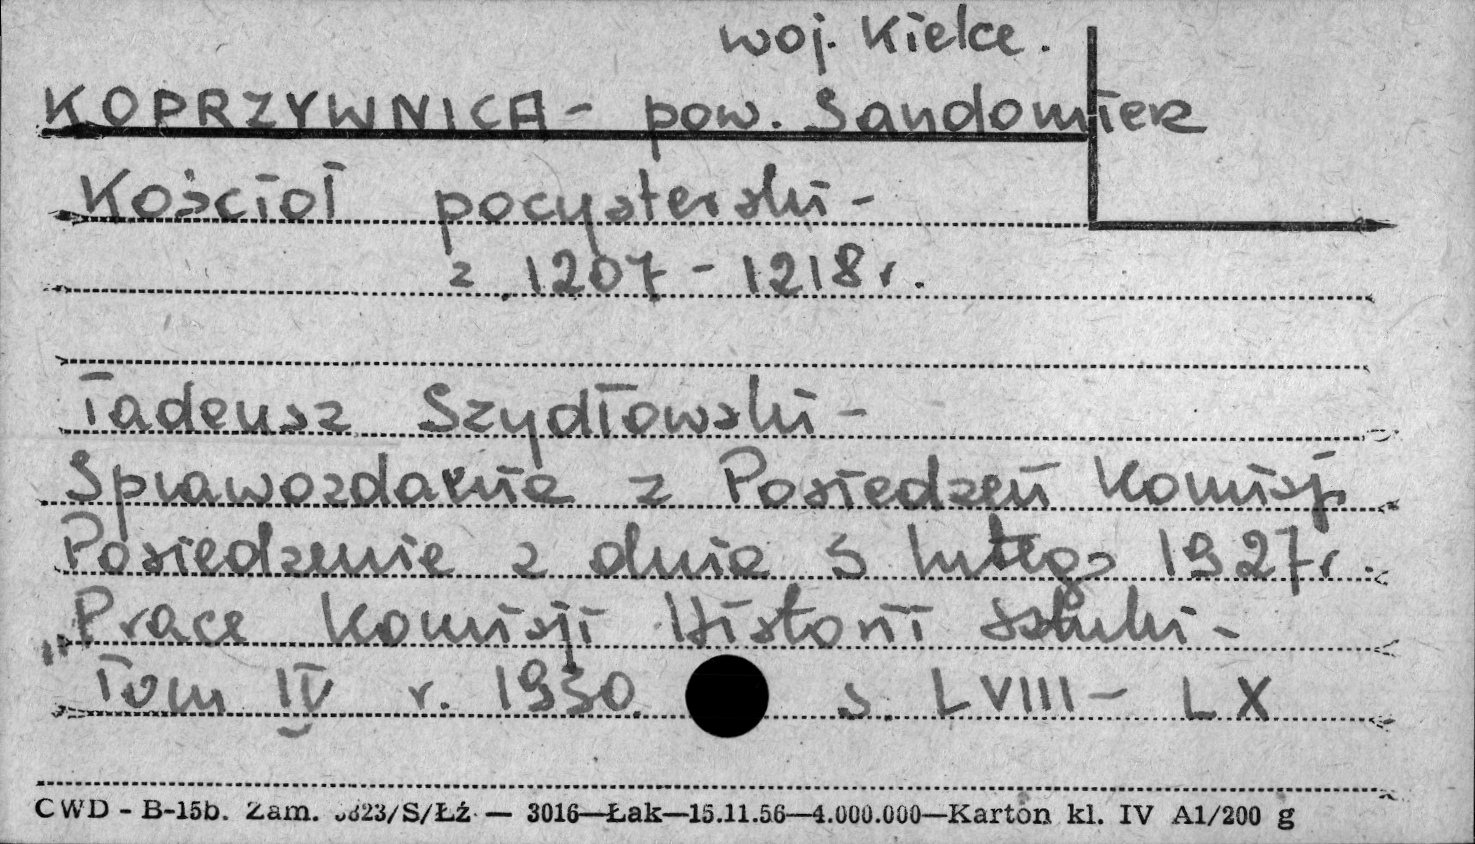 woj. Kielce.
KOPRZYWNICA - pow. Sandomierz
Kościół pocysterski -
z 1207 - 1218 r.
Tadeusz Szydłowski -
Sprawozdanie z Posiedzeń Komisji
Posiedzenie z dnia 3 lutego 1927 r.
„Prace Komisji Historii Sztuki -
Tom IV r. 1930 s. LVIII - LX
CWD - B-15b. Zam. 823/S/Łż — 3016—Łak—15.11.56—4.000.000—Karton kl. IV A1/200 g